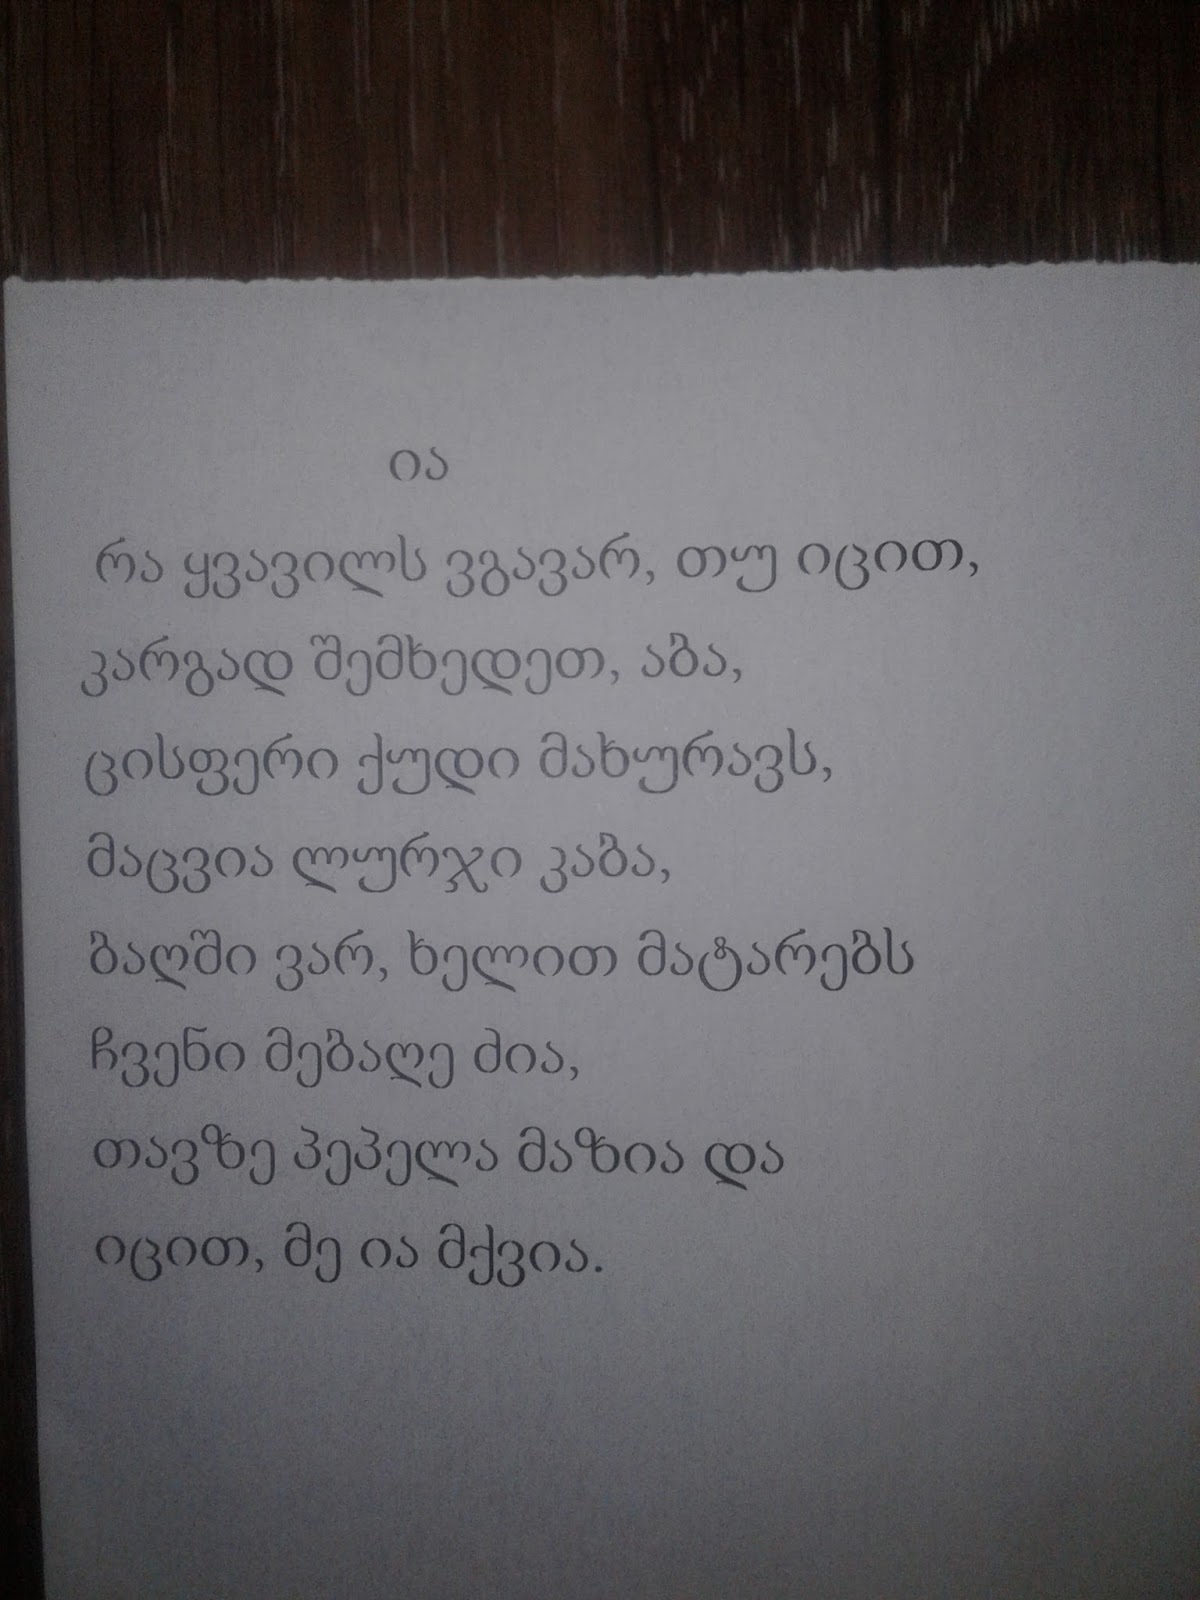 ია
რა ყვავილს ვგავარ, თუ იცით,
კარგად შემხედეთ, აბა,
ცისფერი ქუდი მახურავს,
მაცვია ლურჯი კაბა,
ბაღში ვარ, ხელით მატარებს
ჩვენი მებაღე ძია,
თავზე პეპელა მაზია და
იცით, მე ია მქვია.